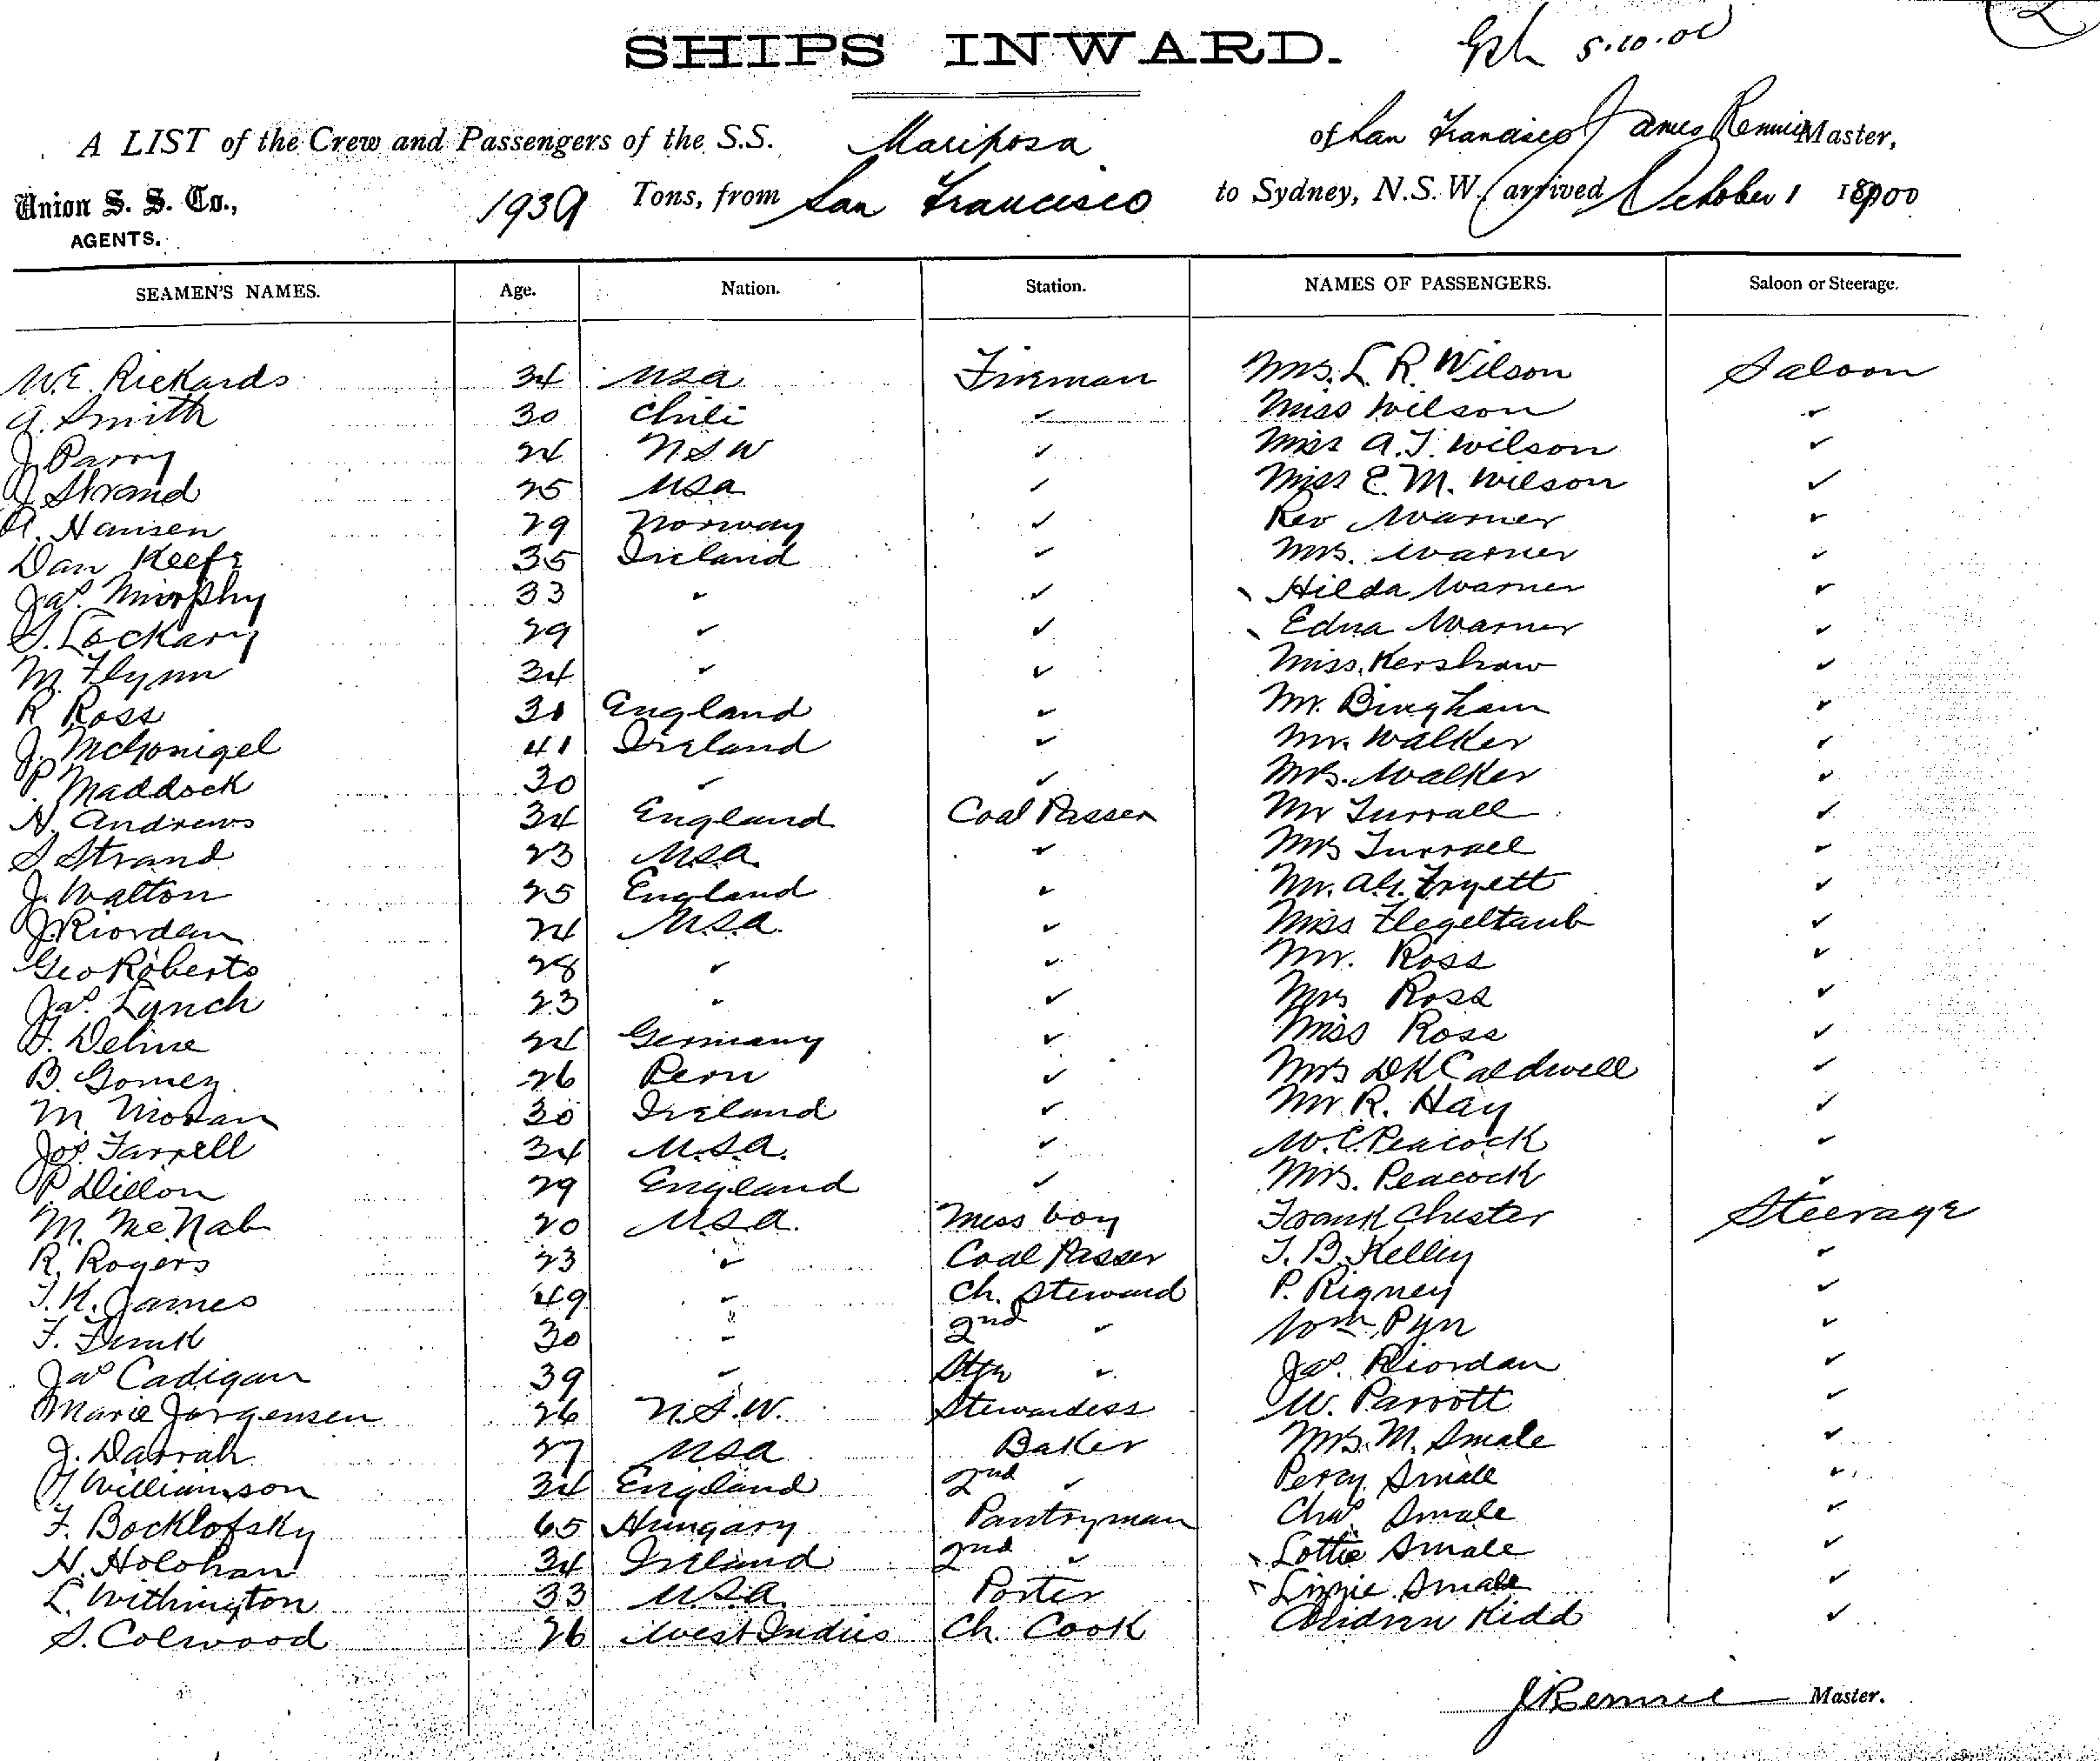 SHIPS INWARD.
5.10.00
2
A LIST of the Crew and Passengers of the S.S. Mariposa of San Francisco James Rennie Master,
Union S. S. Co., AGENTS. 1939 Tons, from San Francisco to Sydney, N.S.W. arrived October 1 1900
SEAMEN'S NAMES. Age. Nation. Station. NAMES OF PASSENGERS. Saloon or Steerage.
W.E. Rickards 34 USA Fireman Mrs. L. R. Wilson Saloon
A. Smith 30 Chili ✓ Miss Wilson ✓
J. Parry 24 NSW ✓ Miss A.J. Wilson ✓
J. Strand 25 USA ✓ Miss E. M. Wilson ✓
A. Hansen 29 Norway ✓ Rev Warner ✓
Dan Keefe 35 Ireland ✓ Mrs. Warner ✓
Jas. Murphy 33 ✓ ✓ Hilda Warner ✓
S. Lockary 29 ✓ ✓ Edna Warner ✓
M. Flynn 34 ✓ ✓ Miss Kershaw ✓
R Ross 31 England ✓ Mr. Bingham ✓
J. McGonigel 41 Ireland ✓ Mr. Walker ✓
P. Maddock 30 ✓ ✓ Mrs. Walker ✓
H. Andrews 34 England Coal Passer Mr Turrall ✓
S Strand 23 U.S.A. ✓ Mrs Turrall ✓
J. Walton 25 England ✓ Mr. Fryett ✓
J. Riordan 24 U.S.A. ✓ Miss Flegeltaub ✓
Geo Roberts 28 ✓ ✓ Mr. Ross ✓
Jas. Lynch 23 ✓ ✓ Mrs Ross ✓
F. Deline 24 Germany ✓ Miss Ross ✓
B. Gomez 26 Peru ✓ Mrs DK Caldwell ✓
M. Moran 30 Ireland ✓ Mr R. Hay ✓
Jos. Farrell 34 U.S.A. ✓ W.C. Peacock ✓
P Dillon 29 England ✓ Mrs. Peacock ✓
M. McNab 20 U.S.A. Mess boy Frank Chester Steerage
R. Rogers 23 ✓ Coal Passer T. B. Kelley ✓
T.K. James 49 ✓ Ch. Steward P. Rigney ✓
F. Funk 30 " 2nd ✓ Wm. Pyn ✓
Jas Cadigan 39 ✓ Stge ✓ Jas. Riordan ✓
Marie Jorgensen 26 N.S.W. Stewardess W. Parrott ✓
J. Darrah 27 USA Baker Mrs. M. Smale ✓
J Williamson 34 England 2nd ✓ Percy Smale ✓
F. Bocklofsky 65 Hungary Pantryman Chas Smale ✓
H. Holohan 34 Ireland 2nd ✓ Lottie Smale ✓
L. Withington 33 U.S.A. Porter Lizzie Smale
S. Colwood 26 West Indies Ch. Cook Kidd ✓
J Rennie Master.